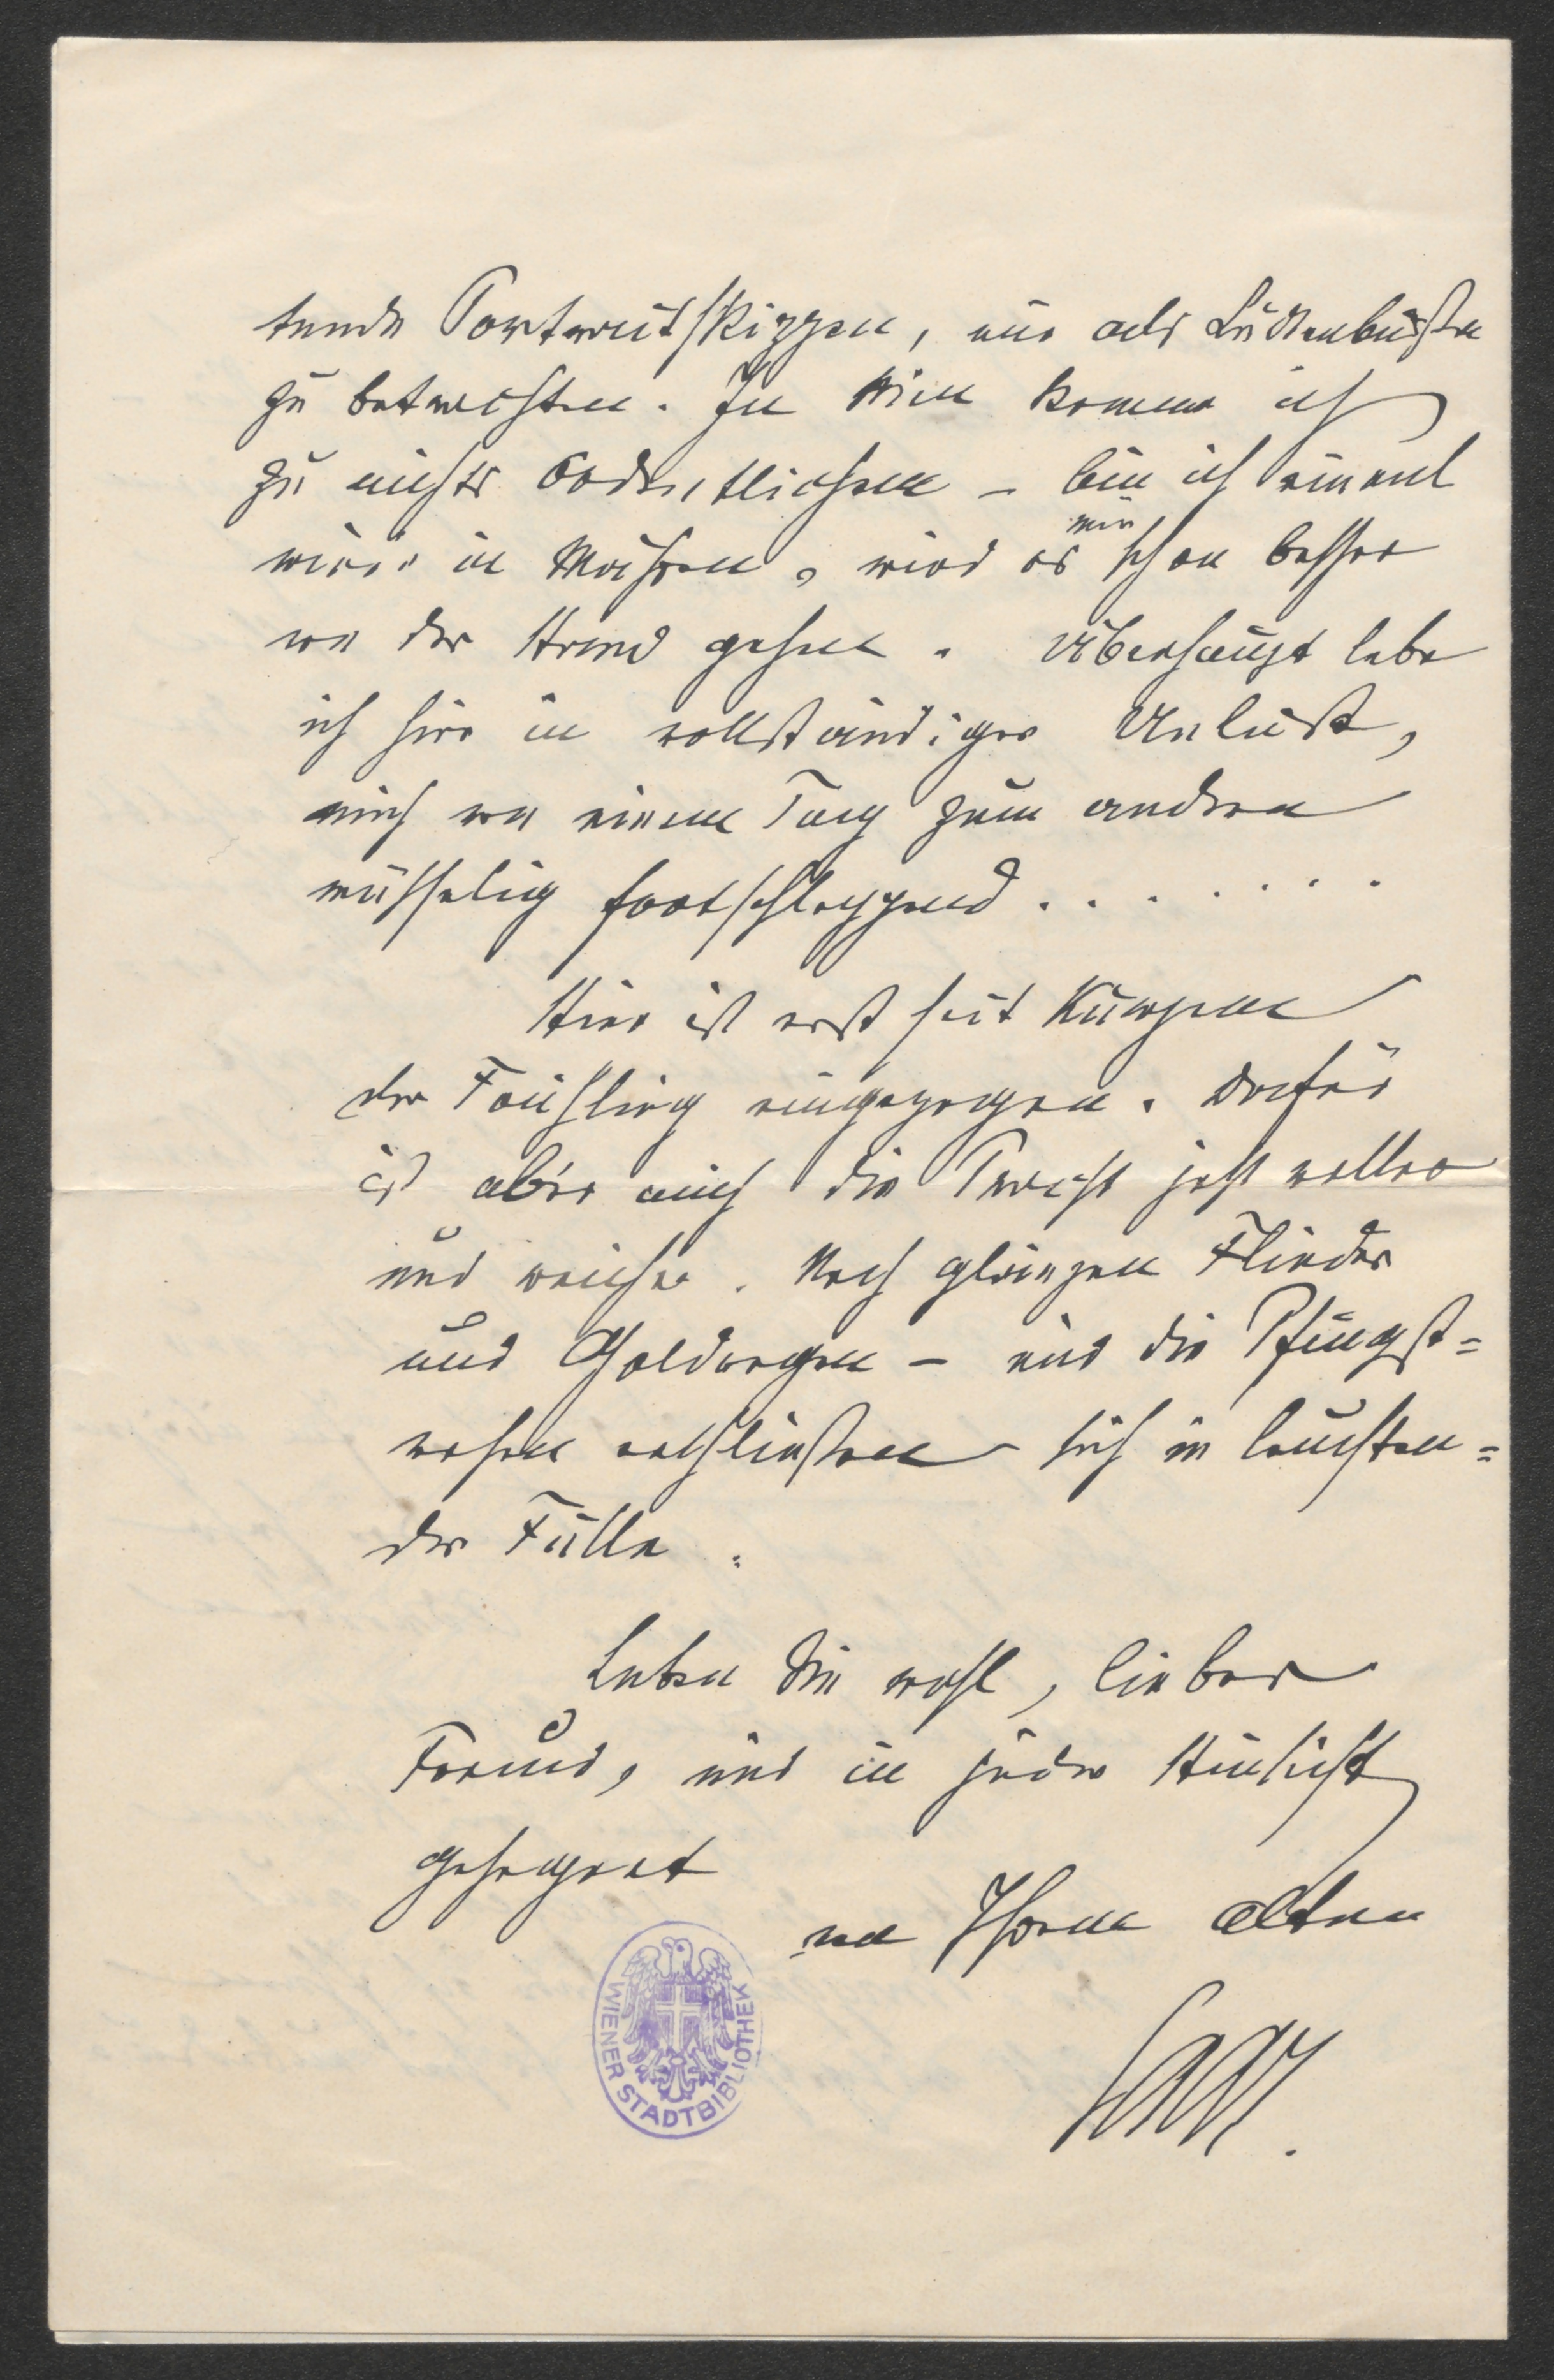 tende Portraitskizzen, nur als Lückenbüßer
zu betrachten. In Wien komme ich
zu nichts Ordentlichem – bin ich einmal
wieder in Mähren, wird es mir schon besser
von der Hand gehen. Überhaupt lebe
ich hier in vollständiger Unlust,
mich von einem Tag zum andren
mühselig fortschleppend . . . . . . .
Hier ist erst seit Kurzem
der Frühling eingezogen. Dafür
ist aber auch die Pracht jetzt voller
und reicher. Noch glänzen Flieder
und Goldregen – und die Pfingst=
rosen erschließen sich in leuchten=
der Fülle.
Leben Sie wohl, lieber
Freund, und in jeder Hinsicht
gesegnet
von Ihrem alten
Saar.
WIENER STADTBIBLIOTHEK